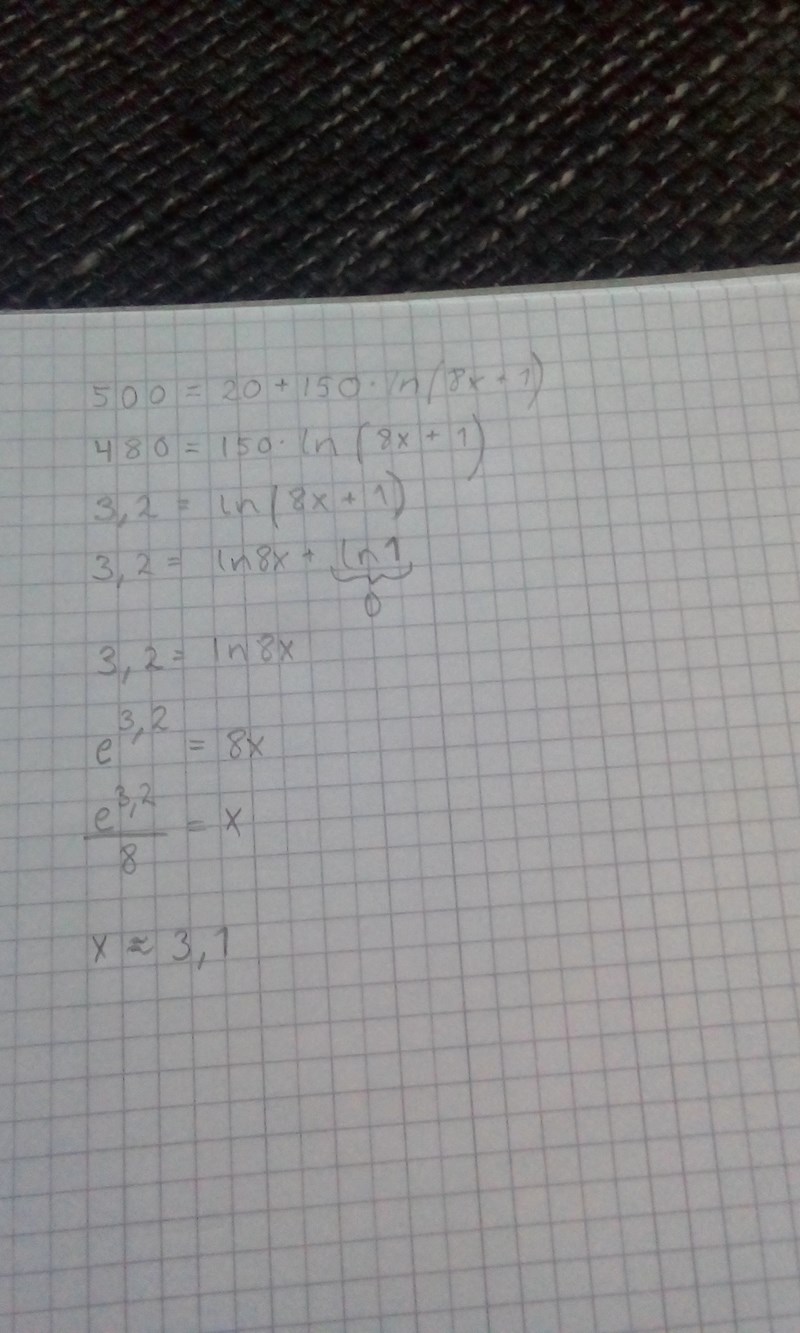 500 = 20 + 150 · ln(8x + 1)
480 = 150 · ln(8x + 1)
3,2 = ln(8x + 1)
3,2 = ln8x + ln1
0
3,2 = ln8x
e^3,2 = 8x
e^3,2/8 = x
x ≈ 3,1